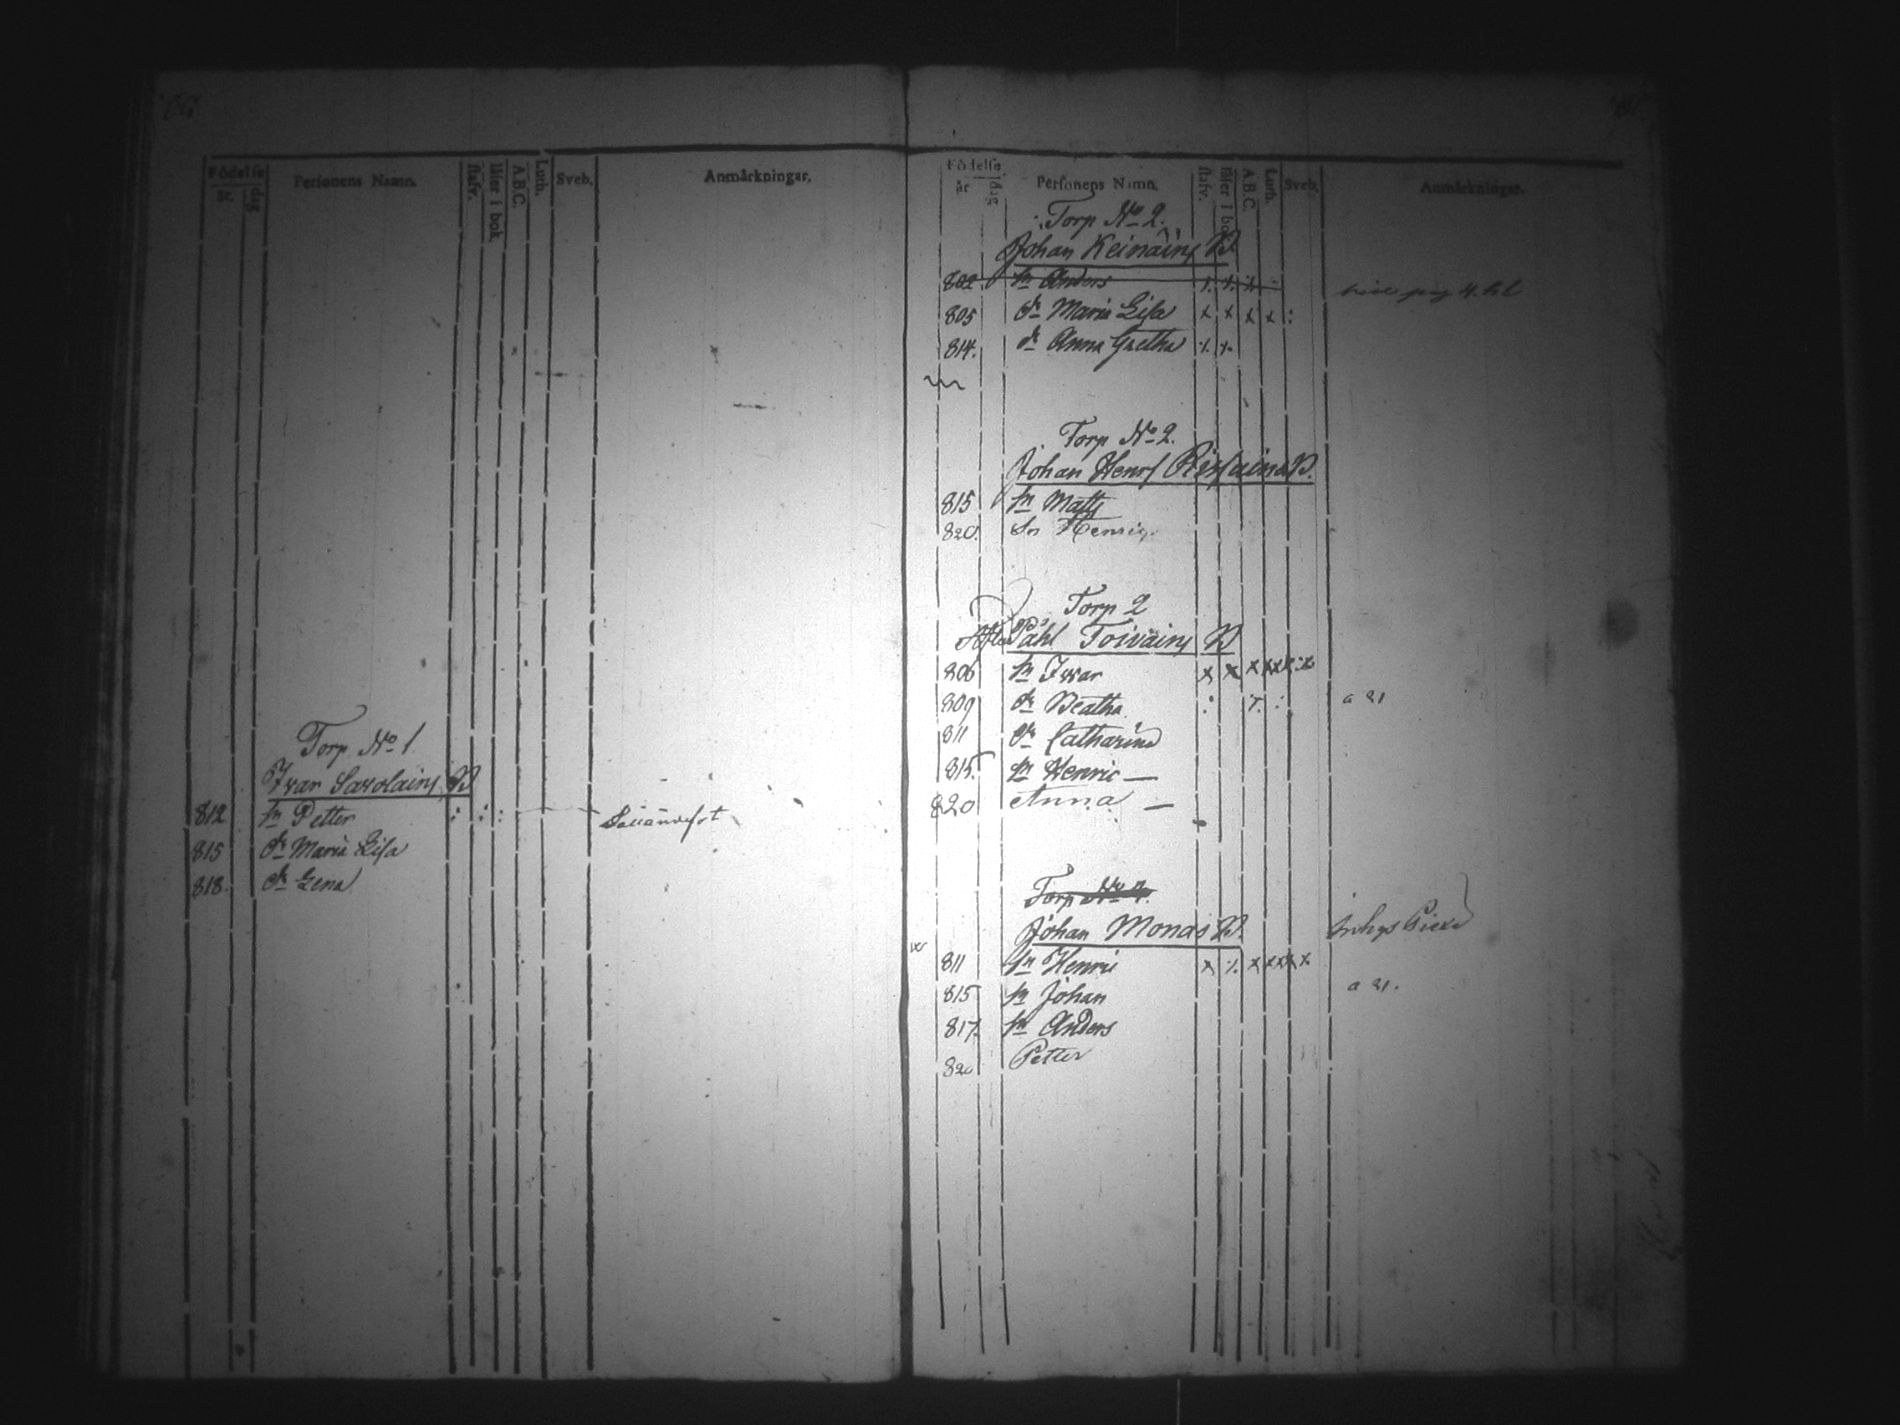 Födelse
år.
dag
Personens Namn.
stafv.
läser i bok.
A.B.C.
Luth.
Sveb.
Anmärkningar.
Torp No 1
Ivar Savolains B
812 sn Petter
815 dr Maria Lisa
818. dr Lena
Födelse
år
dag
Personens Namn.
stafv.
läser i bok
A.B.C.
Luth.
Sveb.
Anmärkningar.
Torp No 2.
Johan Keinäins B
802. sn Anders
805 dr Maria Lisa x x x x :
814. dr Anna Gretha
Torp No 2.
Johan Henr B.
815 sn Matts
820. Sn Henric
Torp 2
Påhl Toivains B
806 sn Ivar
809 dr Beatha a 21
811 dr Catharina
815. sn Henric —
820 Anna —
Torp No
Johan Monas B. Inhys
811 sn Henric
815 sn Johan a 21.
817. sn Anders
820 Petter